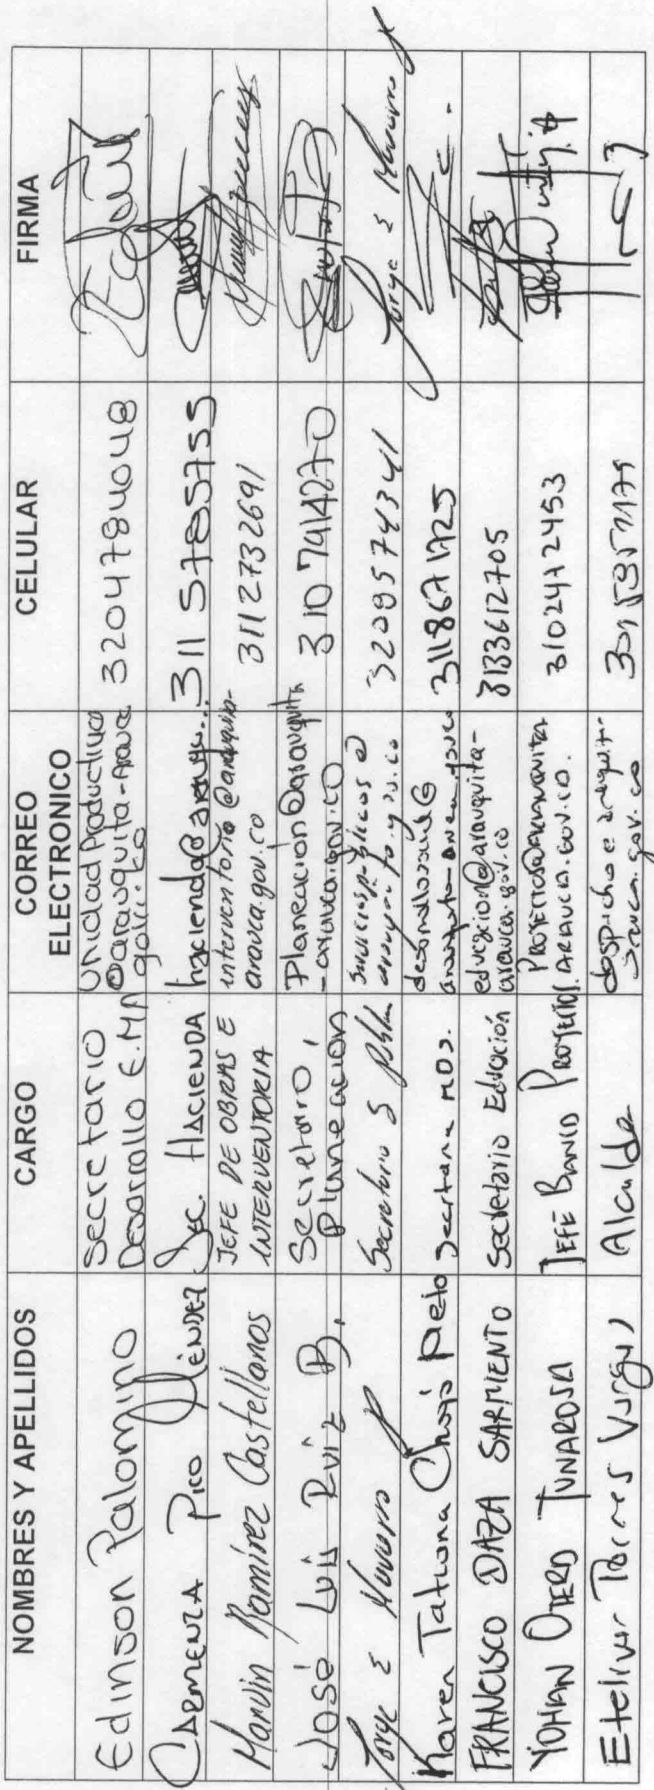 NOMBRES Y APELLIDOS CARGO CORREO ELECTRONICO CELULAR FIRMA
Edinson Palomino Secretario Desarrollo E. MA Unidad Productiva @arauquita-Arauca gov.co 3204784048
CLEMENZA PICO MÉNDEZ Sec. HACIENDA hacienda@arauqu... 311 5785755
Marvin Ramírez Castellanos JEFE DE OBRAS E INTERVENTORIA interventoria@arauquita-arauca.gov.co 3112732691
José Luis Ruiz B. Secretario, Planeación Planeación@arauquita-arauca.gov.co 310 7414270
Jorge E Navarro Secretario S 3209574341 Jorge E Navarro
Karen Tatiana Chogó Melo Secretaria MDS. 3118671725
FRANCISCO DAZA SARMIENTO Secretario Educación educacion@arauquita-arauca.gov.co 3133612705
YOHAN OTERO TUNAROSA JEFE BANCO PROYECTOS PROYECTOS@ARAUQUITA ARAUCA.GOV.CO. 3102472453
Etelivar Torres Vargas Alcalde despacho@arauquita-arauca.gov.co